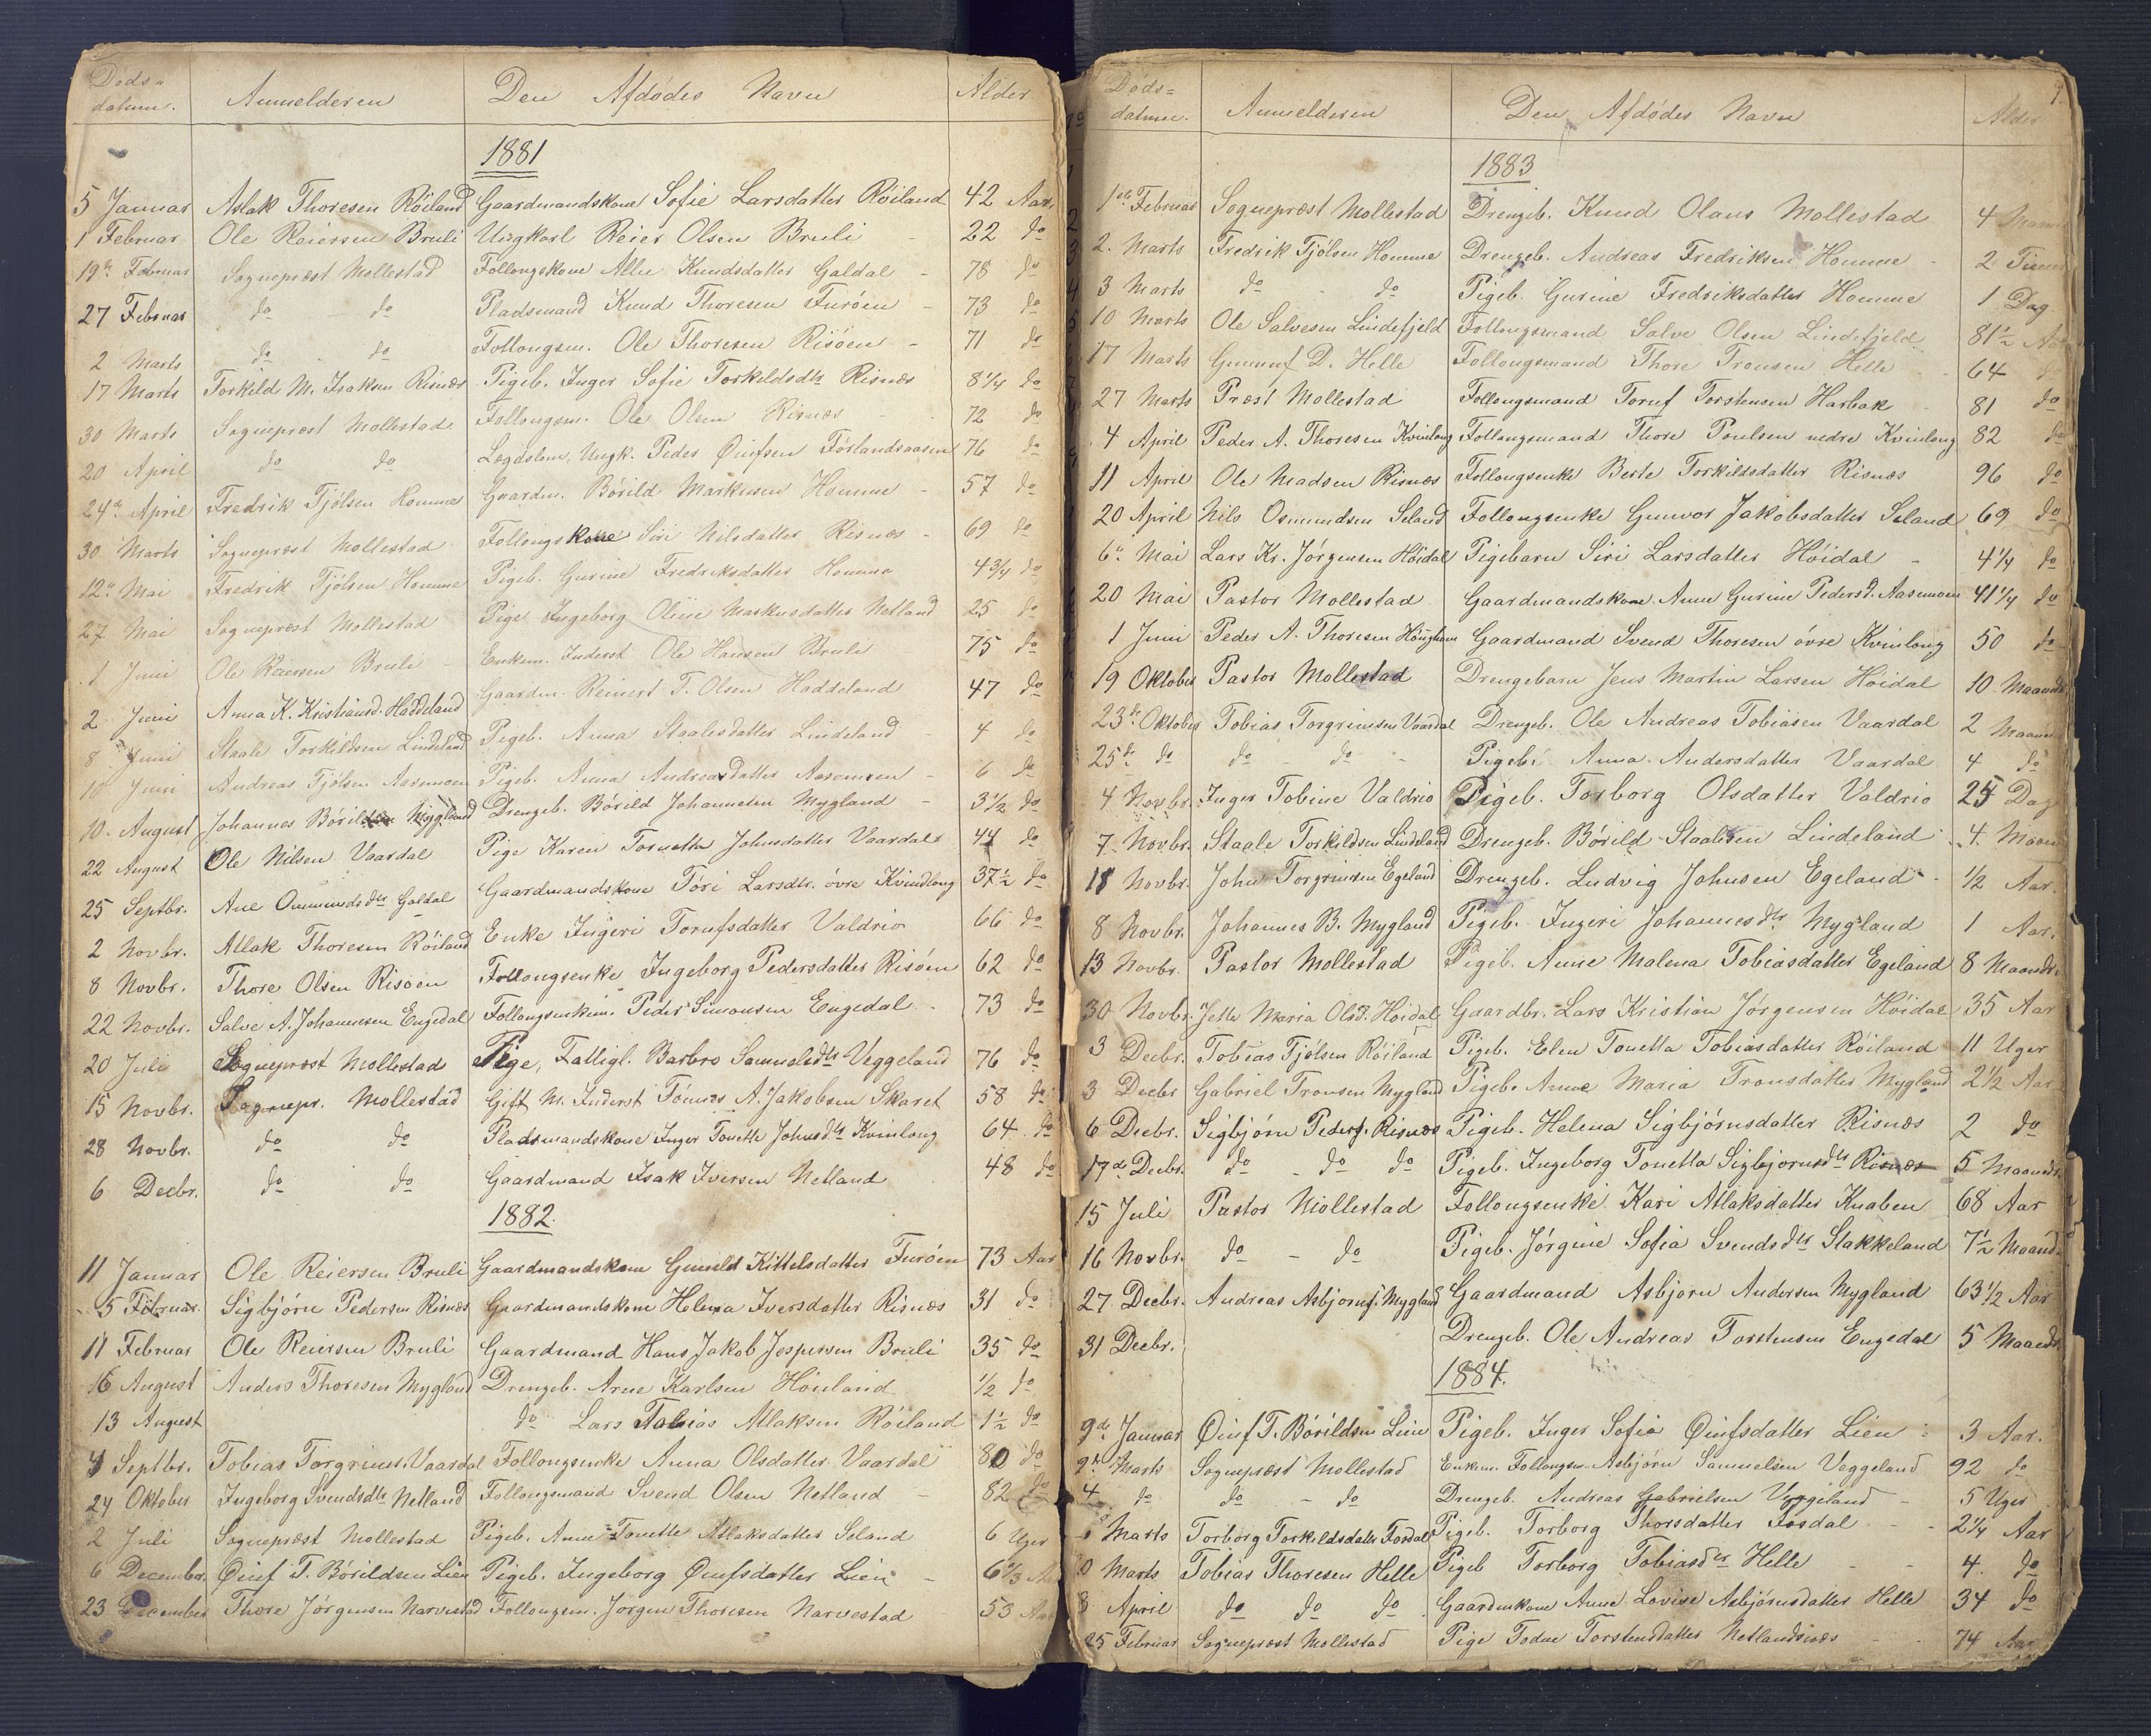 Døds-
datum. Anmelderen Den Afdødes Navn Alder
1881
5 Januar Aslak Thoresen Röiland Gaardmandskone Sofie Larsdatter Röiland 42 Aar.
1 Februar Ole Reiersen Bruli Ungkarl Reier Olsen Bruli - 22 do
19de Februar Sognepræst Mollestad Follougskone Allu Knudsdatter Galdal - 78 do
27 Februar do do Pladsmand Knud Thoresen Furöen - 73 do
2 Marts do do Follougsm. Ole Thoresen Risöen - 71 do
17 Marts Torkild M. Isaksen Risnæs Pigeb. Inger Sofie Torkildsdtr Risnæs 8 1/4 do
30 Marts Sognepræst Mollestad Follougsm. Ole Olsen Risnæs - 72 do
20 April do do Lægdslem, Ungk. Peder Øiufsen Förlandsaasen 76 do
24de April Fredrik Tjölsen Homme Gaardm. Börild Markusen Homme - 57 do
30 Marts Sognepræst Mollestad Follougskone Siri Nilsdatter Risnæs - 69 do
12te Mai Fredrik Tjölsen Homme Pigeb. Gurine Fredriksdatter Homme 4 3/4 do
27 Mai Sognepræst Mollestad Pige Ingeborg Oline Markusdatter Netland 25 do
1 Juni Ole Reiersen Bruli - Enkem. Inderst Ole Hansen Bruli 75 do
2 Juni Anna K. Kristiansd. Haddeland Gaardm. Reinert T. Olsen Haddeland 47 do
8 Juni Staale Torkildsen Lindeland Pigeb. Anna Staalesdatter Lindeland - 4 do
10 Juni Andreas Tjölsen Aasemoen Pigeb. Anna Andreasdatter Aasemoen - 6 do
10. August Johannes Börildsen Mygland Drengeb. Börild Johannesen Mygland - 3 1/2 do
22 August Ole Nilsen Vaardal Pige Karen Tornetta Johnsdatter Vaardal 44 do
25 Septbr. Ane Ommundsdtr Galdal Gaardmandskone Töri Larsdtr. övre Kvindlong 37 1/2 do
2 Novbr. Atlak Thoresen Röiland Enke Ingeri Torufsdatter Valdrio 66 do
8 Novbr. Thore Olsen Risöen Follougsenke Ingeborg Pedersdatter Risöen 62 do
22 Novbr. Salve A. Johannesen Engedal Follougsenkem. Peder Simonsen Engedal - 73 do
20 Juli Sognepræst Mollestad Pige, Fattigl. Barbro Samuelsdtr Veggeland 76 do
15 Novbr. Sognepr. Mollestad Gift M. Inderst Tönnes A. Jakobsen Skaret 58 do
28 Novbr. do do Pladsmandskone Inger Tonette Johnsdtr Kvinlong 64 do
6 Decbr. do do Gaardmand Isak Iversen Netland 48 do
1882.
11 Januar Ole Reiersen Bruli Gaardmandskone Gunild Kittelsdatter Furöen 73 Aar
5 Februar. Sigbjörn Pedersen Risnæs Gaardmandskone Helena Iversdatter Risnæs 31 do
11 Februar Ole Reiersen Bruli Gaardmand Hans Jakob Jespersen Bruli 35 do
16 August Anders Thoresen Mygland Drengeb. Arne Karlsen Höniland 1/2 do
13 August do Lars Tobias Atlaksen Röiland 1 1/2 do
4 Septbr. Tobias Torgrims. Vaardal Follougsenke Anna Olsdatter Vaardal 80 do
24 Oktober Ingeborg Svendsdtr Netland Follougsmand Svend Olsen Netland - 82 do
2 Juli Sognepræst Mollestad Pigeb. Anne Tonette Atlaksdatter Seland 6 Uger
6 December. Øiuf T. Börildsen Lien Pigeb. Ingeborg Øiufsdatter Lien - 6 2/3 Aar
23 December Thore Jörgensen Narvestad Follougsm. Jörgen Thoresen Narvestad 53 Aar
Døds=
datum. Anmelderen Den Afdødes Navn Alder
1883
1ste Februar Sognepræst Mollestad Drengeb. Knud Olaus Mollestad 4
2. Marts Fredrik Tjölsen Homme Drengeb. Andreas Fredriksen Homme - 2 Timer
3 Marts do - do Pigeb. Gurine Fredriksdatter Homme 1 Dag
10 Marts Ole Salvesen Lindefjeld Follougsmand Salve Olsen Lindefjeld 81 1/2 Aar
17 Marts Gunnuf D. Helle Follougsmand Thore Tronsen Helle - 64 do
27 Marts Præst Mollestad Follougsmand Toruf Torstensen Harbak 81 do
4 April Peder A. Thoresen Kvinlong Follougsmand Thore Poulsen nedre Kvinlong 82 do
11 April Ole Madsen Risnæs Follougsenke Berte Torkildsdatter Risnæs 96 do
20 April Nils Osmundsen Seland Follougsenke Gunvor Jakobsdatter Seland 69 do
6te Mai Lars Kr. Jörgensen Höidal Pigebarn Siri Larsdatter Höidal - 4 1/4 do
20 Mai Pastor Mollestad Gaardmandskone Anne Gurine Pedersd. Aasemoen 41 1/4 do
1 Juni Peder A. Thoresen Gaardmand Svend Thoresen övre Kvinlong 50 do
19 Oktober Pastor Mollestad Drengebarn Jens Martin Larsen Höidal 10 Maaneder
23de Oktober Tobias Torgrimsen Vaardal Drengeb. Ole Andreas Tobiasen Vaardal 2 Maaneder
25de do do - do - Pigeb. Anna Andersdatter Vaardal 4 do
4 Novbr. Inger Tobine Valdrio Pigeb. Torborg Olsdatter Valdrio 25 Dage
7. Novbr. Staale Torkildsen Lindeland Drengeb. Börild Staalesen Lindeland 4. Maaneder
18 Novbr. John Torgrimsen Egeland Drengeb. Ludvig Johnsen Egeland - 1/2 Aar.
8 Novbr. Johannes B. Mygland Pigeb. Ingeri Johannesdtr Mygland 1 Aar.
13 Novbr. Pastor Mollestad Pigeb. Anne Malena Tobiasdatter Egeland 8 Maaneder
30 Novbr. Jette Maria Olsd. Höidal Gaardbr. Lars Kristian Jörgensen Höidal 35 Aar
3 Decbr. Tobias Tjölsen Röiland Pigeb. Elen Tonetta Tobiasdatter Röiland 11 Uger
3 Decbr Gabriel Tronsen Mygland Pigeb. Anne Maria Tronsdatter Mygland 2 1/2 Aar
6 Decbr. Sigbjörn Peders. Risnæs Pigeb. Helena Sigbjörnsdatter Risnæs 2 do
17de Decbr. do - do do Pigeb. Ingeborg Tonetta Sigbjornsdtr Risnæs 5 Maaneder
15 Juli Pastor Mollestad Follougsenke Kari Atlaksdatter Knaben 68 Aar
16 Novbr. do - do Pigeb. Jörgine Sofia Svendsdtr Stakkeland 7 1/2 Maaned
27 Decbr. Andreas Asbjörns. Mygland Gaardmand Asbjörn Andersen Mygland 63 1/2 Aar
31 Decbr. Drengeb. Ole Andreas Torstensen Engedal 5 Maaneder
1884.
9de Januar Øiuf T. Börildsen Lien Pigeb. Inger Sofia Øiufsdatter Lien 3 Aar.
2de Marts Sognepræst Mollestad Enkem. Follougsm. Asbjörn Samuelsen Veggeland 92 do
4 do do - do Drengeb. Andreas Gabrielsen Veggeland - 5 Uger
Marts Torborg Torkildsdatter Fosdal Pigeb. Torborg Thorsdatter Fosdal - 2 1/4 Aar
Marts Tobias Thoresen Helle Pigeb Torborg Tobiasdtr Helle - 4. do
8 April do do do Gaardmkone Anne Lovise Asbjörnsdatter Helle 34 do
25 Februar Sognepræst Mollestad Pige Todne Torstensdatter Netlandsnæs - 74 Aar